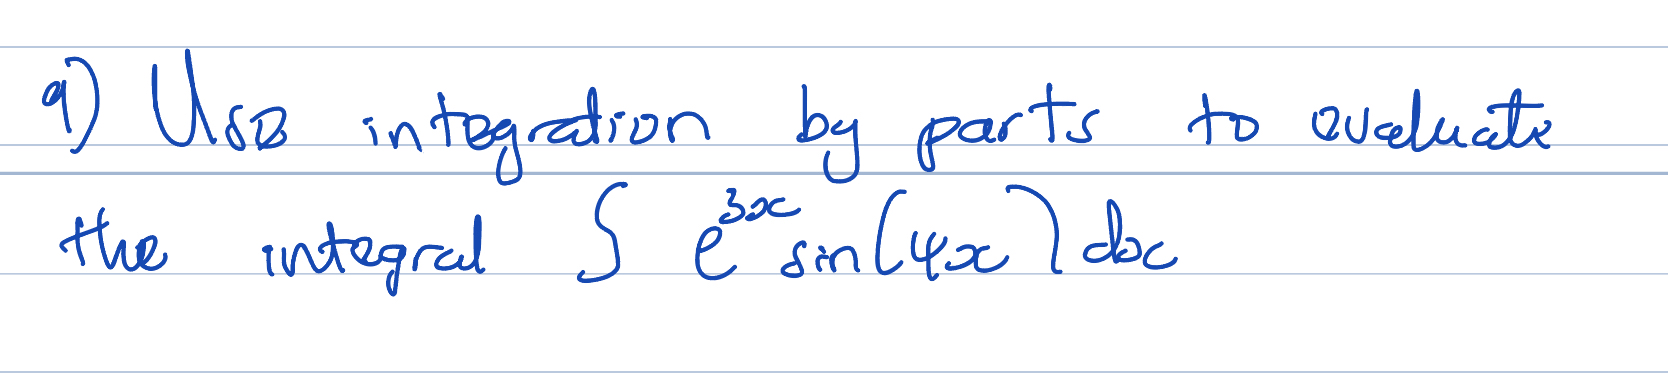 9) Use integration by parts to evaluate
the integral ∫ e^{3x} sin(4x) dx